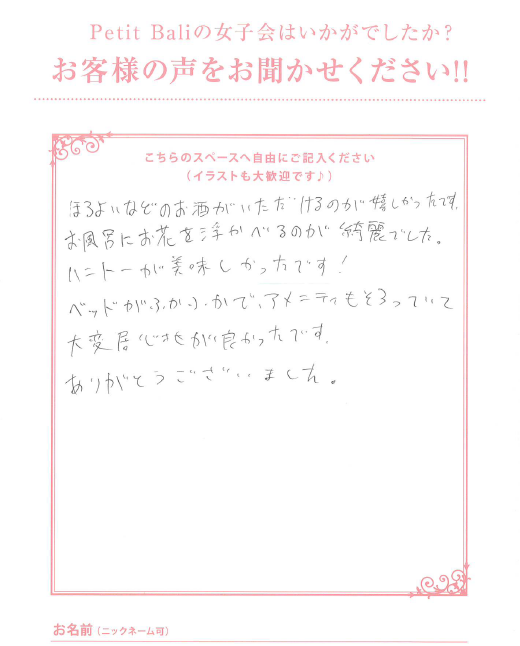 Petit Baliの女子会はいかがでしたか?
お客様の声をお聞かせください!!
こちらのスペースへ自由にご記入ください
(イラストも大歓迎です♪)
ほろよいなどのお酒がいただけるのが嬉しかったです。
お風呂にお花を浮かべるのが綺麗でした。
ハニトーが美味しかったです!
ベッドがふかふかで、アメニティもそろっていて
大変居心地が良かったです。
ありがとうございました。
お名前(ニックネーム可)